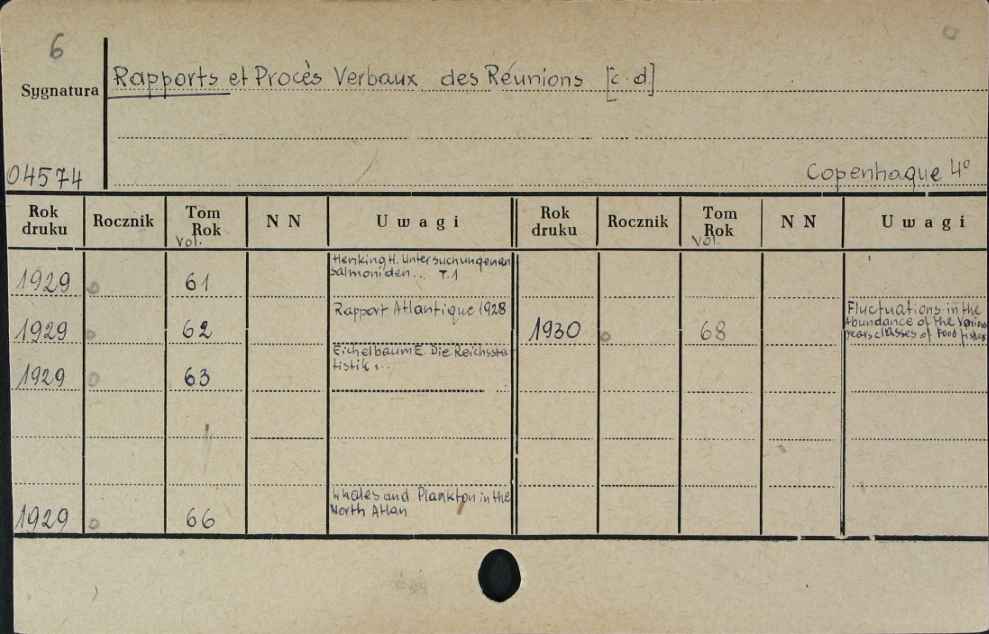 6
Sygnatura
Rapports et Procès Verbaux des Réunions [c.d]
04574
Copenhague 4°
Rok druku Rocznik Tom Rok N N Uwagi Rok druku Rocznik Tom Rok N N Uwagi
Vol. Vol.
1929 o 61 Henking H. Untersuchungen an
Salmoniden... T.1
1929 o 62 Rapport Atlantique 1928
1930 o 68 Fluctuations in the
abundance of the various
years classes of food fishes
1929 o 63 Eichelbaum E. Die Reichssta-
tistik...
1929 o 66 Whales and Plankton in the
North Atlan